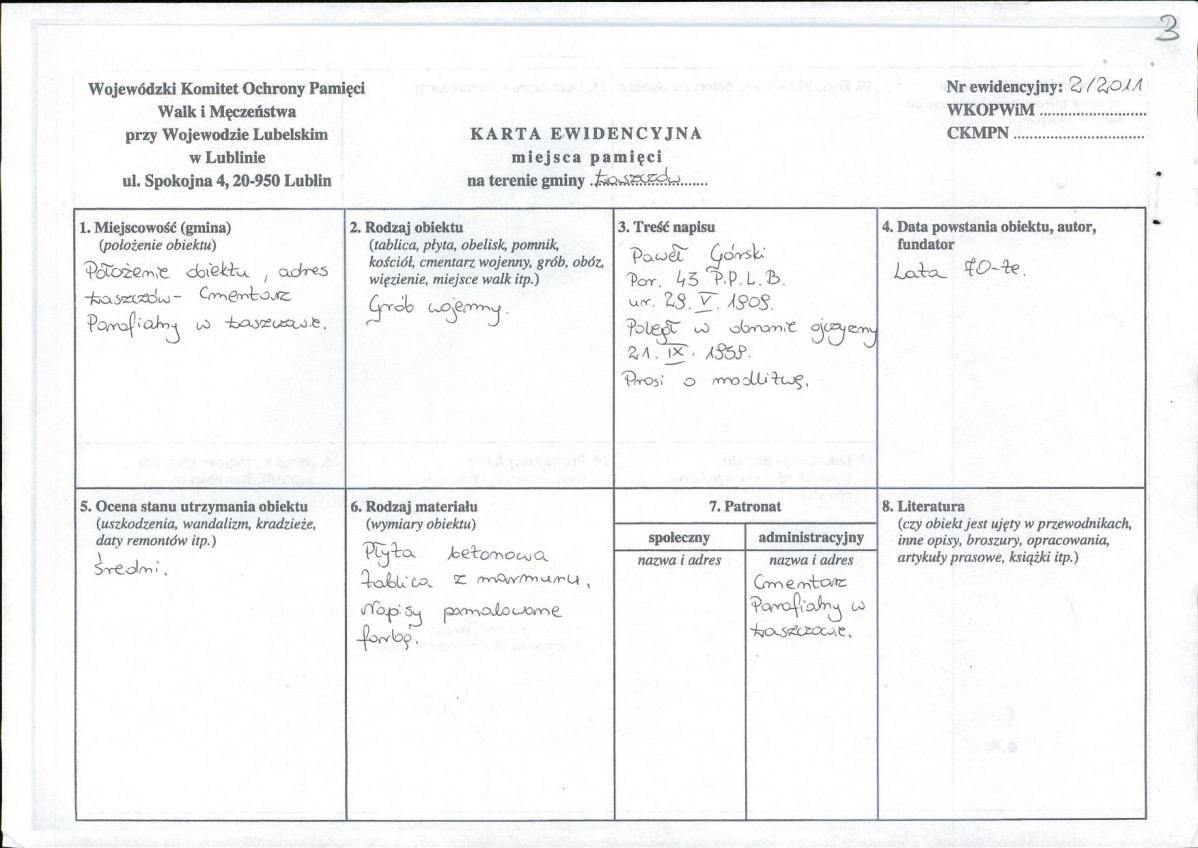 3
Wojewódzki Komitet Ochrony Pamięci
Walk i Męczeństwa
przy Wojewodzie Lubelskim
w Lublinie
ul. Spokojna 4, 20-950 Lublin
KARTA EWIDENCYJNA
miejsca pamięci
na terenie gminy Łaszczów
Nr ewidencyjny: 2/2011
WKOPWiM
CKMPN
1. Miejscowość (gmina)
(położenie obiektu)
Położenie obiektu, adres
Łaszczów- Cmentarz
Parafialny w Łaszczowie.
2. Rodzaj obiektu
(tablica, płyta, obelisk, pomnik,
kościół, cmentarz wojenny, grób, obóz,
więzienie, miejsce walk itp.)
Grób wojenny.
3. Treść napisu
Paweł Górski
Por. 43 P.P.L.B.
ur. 29. V. 1909.
Poległ w obronie ojczyzny
21. IX. 1939.
Prosi o modlitwę.
4. Data powstania obiektu, autor,
fundator
Lata 70-te.
5. Ocena stanu utrzymania obiektu
(uszkodzenia, wandalizm, kradzieże,
daty remontów itp.)
Średni.
6. Rodzaj materiału
(wymiary obiektu)
Płyta betonowa
tablica z marmuru,
Napisy pomalowane
farbą.
7. Patronat
społeczny
nazwa i adres
administracyjny
nazwa i adres
Cmentarz
Parafialny w
Łaszczowie.
8. Literatura
(czy obiekt jest ujęty w przewodnikach,
inne opisy, broszury, opracowania,
artykuły prasowe, książki itp.)